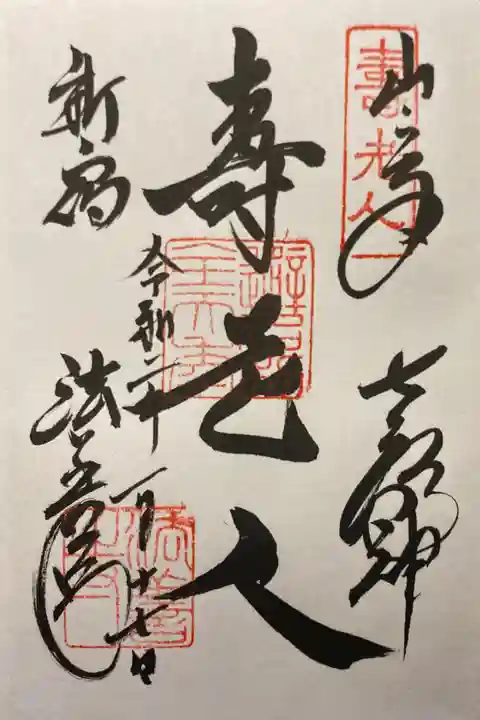 壽老人
山之手七福神
壽老人
令和二年一月十七日
新宿 法善寺